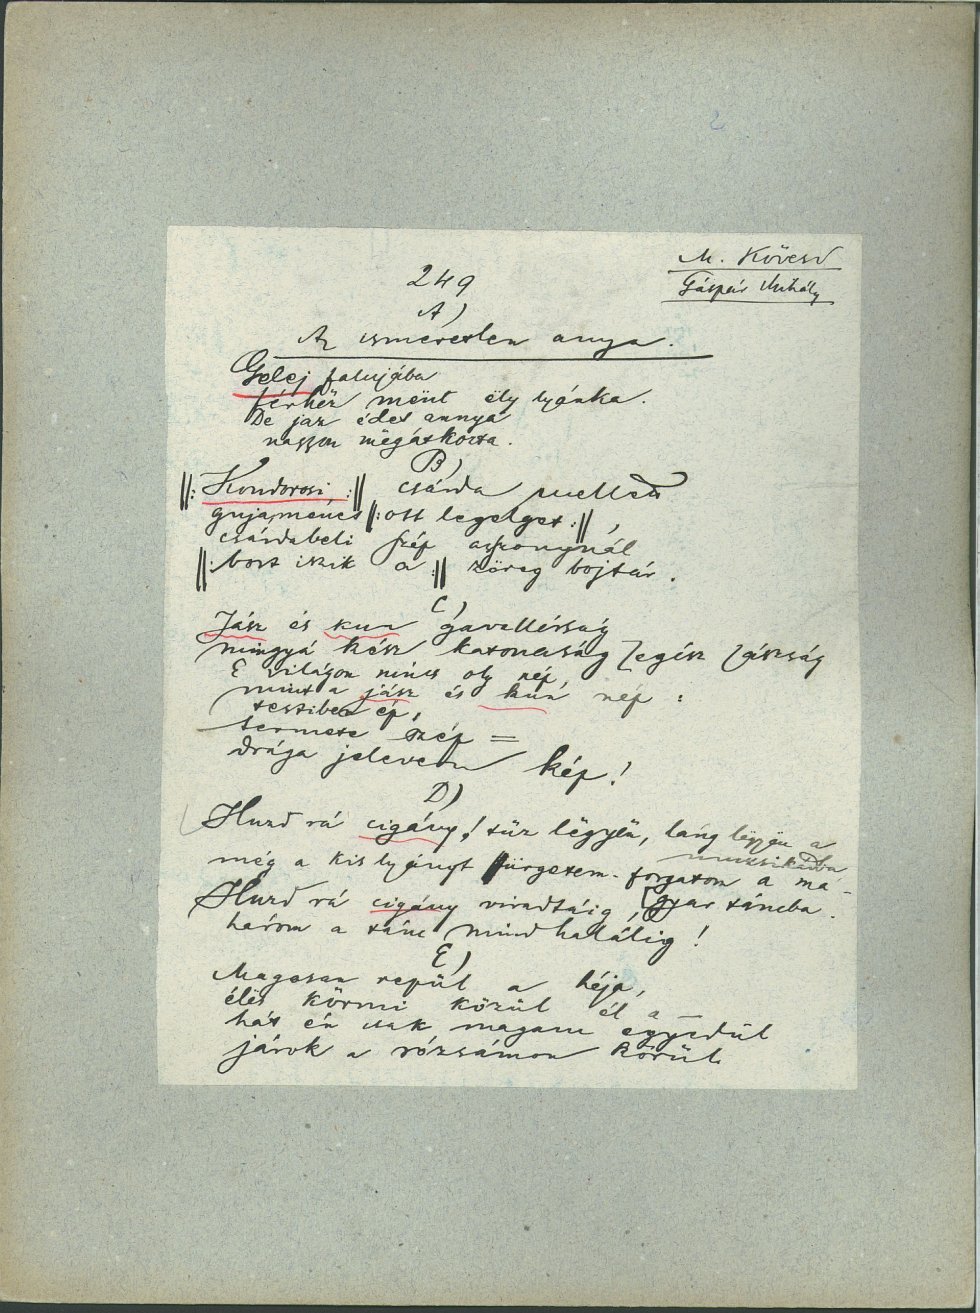 M. Kövesd
Gáspár Mihály
249
A)
Az ismeretlen anya.
Gelej falujába
férhëz mënt ëly lyánka.
De jaz édes annya
nasszon mëgátkozta.
B)
‖: Kondorosi :‖ csárda mellett
gujaménës ‖: ott legelget :‖,
csárdabeli szép asszonynál
‖: bort iszik a :‖ zöreg bojtár.
C)
Jász és kun gavallérság
mingyá kész katonaság egész
E világon nincs oly nép,
mint a jász és kun nép :
testiben ép,
termete szép =
drága jeleven kép!
D)
Huzd rá cigány! tüz lëgyën, láng lëgyën a
muzsikádba
még a kis lyányt fürgetem-forgatom a ma-
Huzd rá cigány viradtáig, gyar táncba.
három a tánc mind halálig!
E)
Magosan repül a héja,
éles körmi közül él a –
hát én csak magam egyedül
járok a rózsámon körül